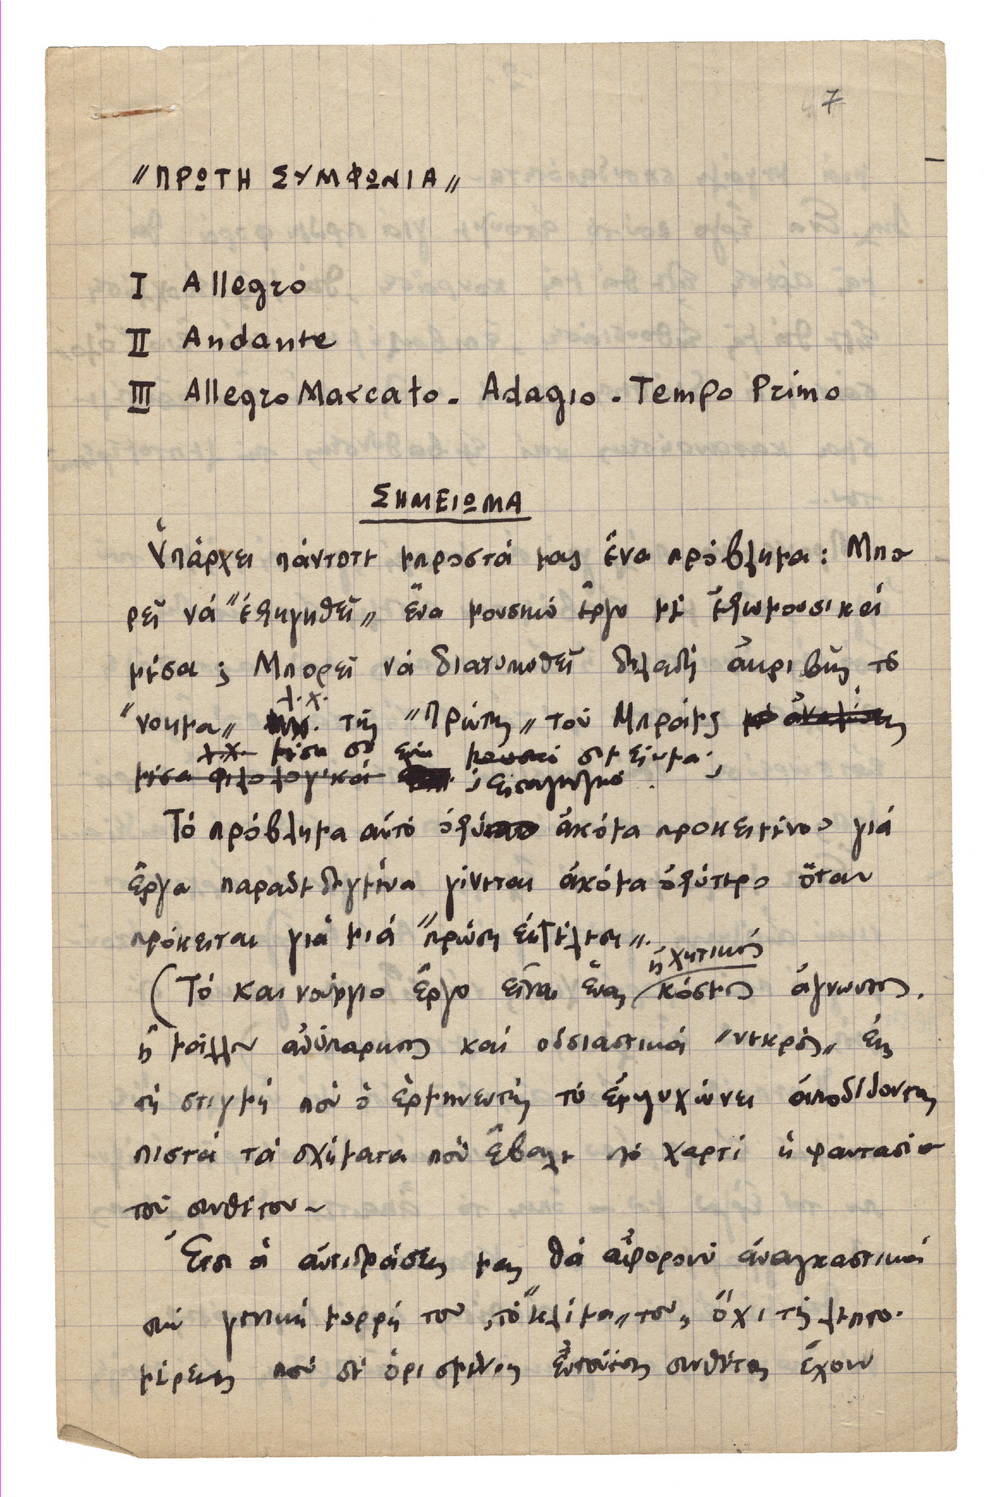 7
"ΠΡΩΤΗ ΣΥΜΦΩΝΙΑ"
I Allegro
II Andante
III Allegro Marcato - Adagio - Tempo Primo
ΣΗΜΕΙΩΜΑ
Ὑπάρχει πάντοτε μπροστά μας ἕνα πρόβλημα: Μπο
ρεῖ νά "ἐξηγηθεῖ" ἕνα μουσικό ἔργο μέ ἐξωμουσικά
μέσα; Μπορεῖ νά διατυπωθεῖ δηλαδή ἀκριβῶς τό
λ.χ.
"νόημα" τῆς "Πρώτης" τοῦ Μπράμς
μέσα σέ ἕνα σημείωμα;
μέσα φιλολογικά εἰσαγωγικό
Τό πρόβλημα αὐτό ὀξύ ἀκόμα προκειμένου γιά
ἔργα παραδεδεγμένα γίνεται ἀκόμα ὀξύτερο ὅταν
πρόκειται γιά μιά "πρώτη ἐκτέλεση".
ἠχητικός
(Τό καινούργιο ἔργο εἶναι ἕνας κόσμος ἄγνωστος.
ἤ μᾶλλον ἀνύπαρκτος καί οὐσιαστικά "νεκρός" ὥς
τή στιγμή πού ὁ ἑρμηνευτής τό ἐμψυχώνει ἀποδίδοντας
πιστά τά σχήματα πού ἔβαλε στό χαρτί ἡ φαντασία
τοῦ συνθέτου ~
Ἔτσι οἱ ἀντιδράσεις μας θά ἀφοροῦν ἀναγκαστικά
στή γενική μορφή του, τό "κλίμα" του, ὄχι τίς λεπτο-
μέρειες πού σέ ὁρισμένους συνθέτες ἔχουν